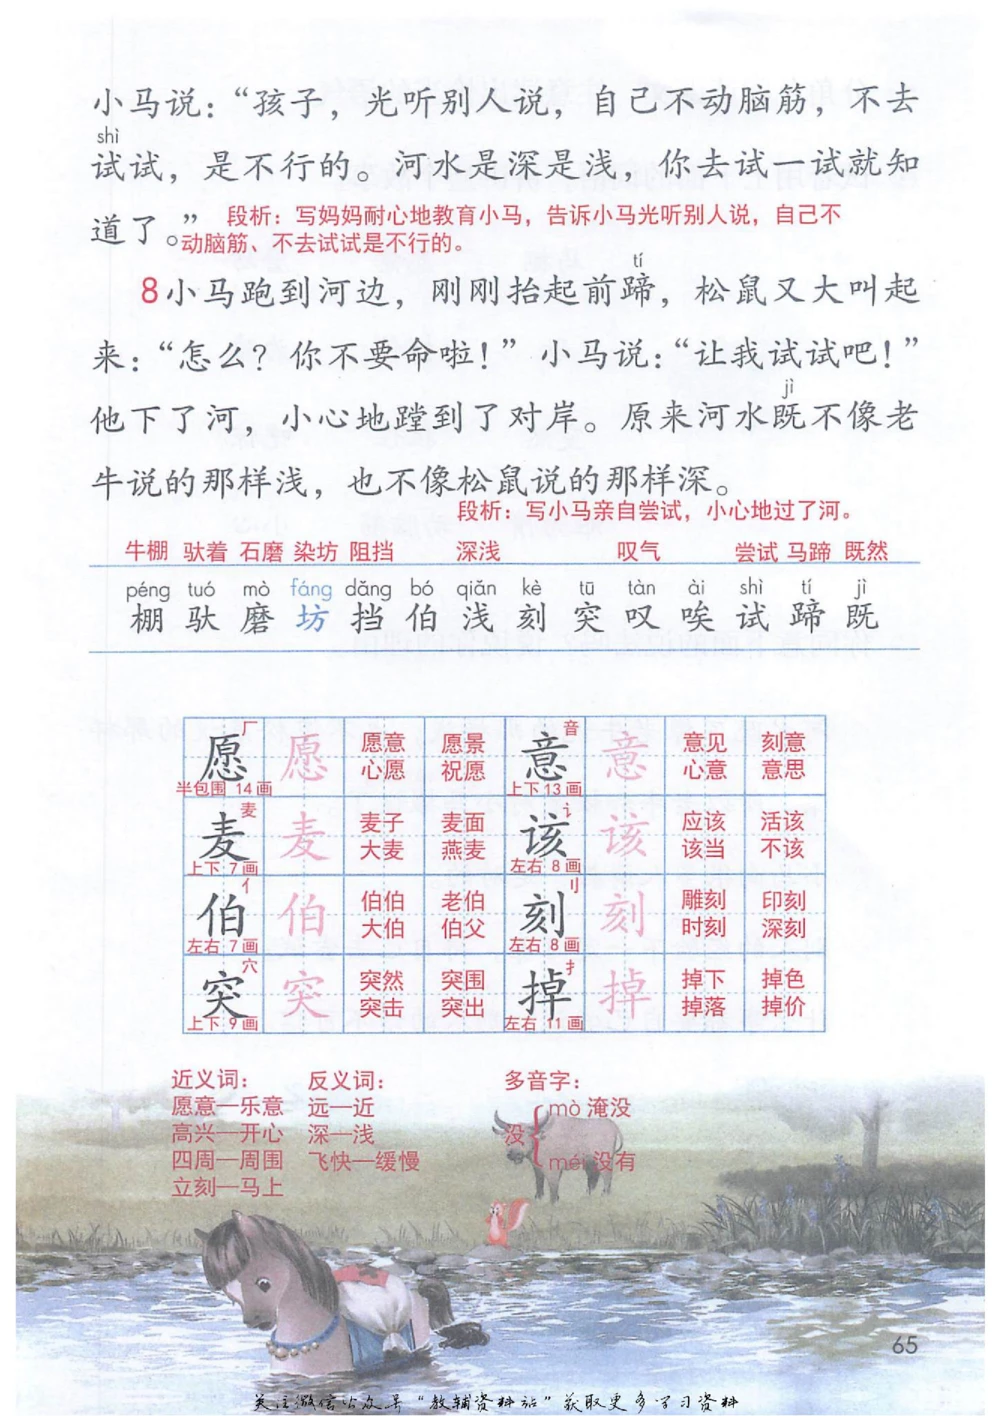 小马说：“孩子，光听别人说，自己不动脑筋，不去
shì
试试，是不行的。河水是深是浅，你去试一试就知
道了。”
段析：写妈妈耐心地教育小马，告诉小马光听别人说，自己不
动脑筋、不去试试是不行的。
tí
8小马跑到河边，刚刚抬起前蹄，松鼠又大叫起
来：“怎么？你不要命啦！”小马说：“让我试试吧！”
jì
他下了河，小心地蹚到了对岸。原来河水既不像老
牛说的那样浅，也不像松鼠说的那样深。
段析：写小马亲自尝试，小心地过了河。
牛棚 驮着 石磨 染坊 阻挡 深浅 叹气 尝试 马蹄 既然
péng tuó mò fáng dǎng bó qiǎn kè tū tàn ài shì tí jì
棚 驮 磨 坊 挡 伯 浅 刻 突 叹 唉 试 蹄 既
厂 音
愿 愿 愿意 愿景 意 意 意见 刻意
心愿 祝愿 心意 意思
半包围 14画 上下 13画
麦 讠
麦 麦 麦子 麦面 该 该 应该 活该
大麦 燕麦 该当 不该
上下 7画 左右 8画
亻 刂
伯 伯 伯伯 老伯 刻 刻 雕刻 印刻
大伯 伯父 时刻 深刻
左右 7画 左右 8画
穴 扌
突 突 突然 突围 掉 掉 掉下 掉色
突击 突出 掉落 掉价
上下 9画 左右 11画
近义词： 反义词： 多音字：
愿意—乐意 远—近 mò 淹没
高兴—开心 深—浅 没
四周—周围 飞快—缓慢 méi 没有
立刻—马上
65
关注微信公众号“教辅资料站”获取更多学习资料